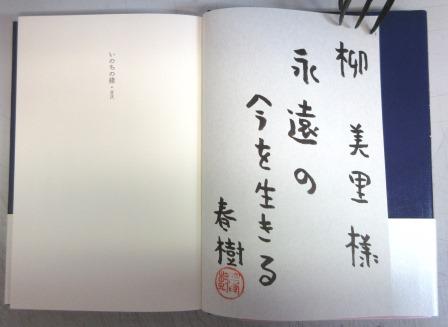 柳美里様
永遠の
今を生きる
春樹
いのちの緒・目次